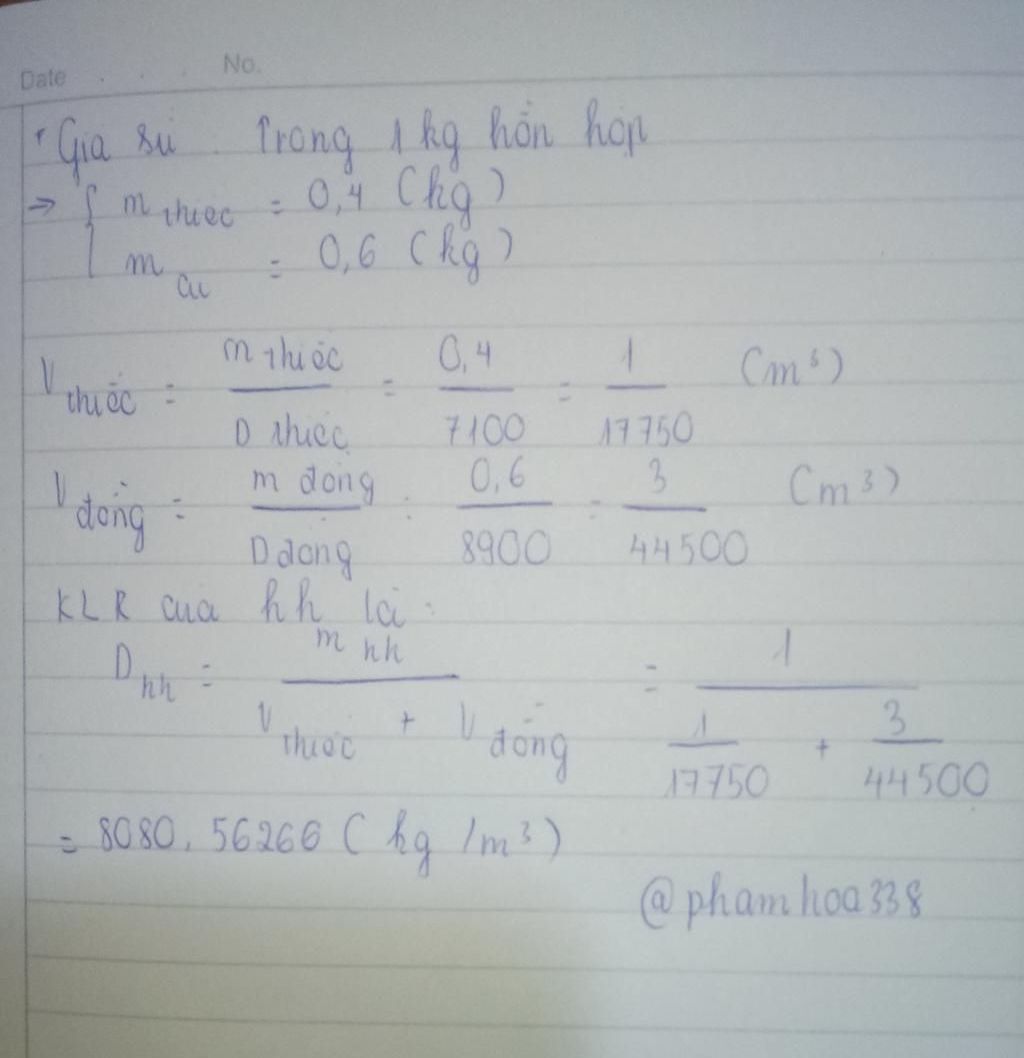 Date . . . No.
Giả sử . Trong 1 kg hỗn hợp
=> { m thiec = 0,4 (kg)
m cu = 0,6 (kg)
V thiếc = m thiếc / D thiếc = 0,4 / 7100 = 1 / 17750 (m³)
V đồng = m đồng / D đồng = 0,6 / 8900 = 3 / 44500 (m³)
KLR của hh là :
D hh = m hh / V thiếc + V đồng = 1 / 1 / 17750 + 3 / 44500
= 8080,56266 (kg /m³)
@phamhoa338